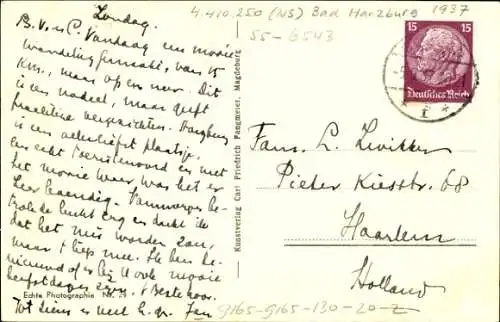 4.410.250 (NS) Bad Harzburg 1937
55-6543
Zondag.
B. V. & C. Vandaag een mooie
wandeling gemaakt, van 15
Km., maar op en neer. Dit
is een nadeel, maar geeft
prachtige vergezichten. Harzburg
is een allerliefst plaatsje,
een echt toeristenoord en met
het mooie weer was het er
zeer levendig. Vanmorgen be-
trok de lucht erg en dacht ik
dat het mis worden zou,
maar 't liep mee. Ik ben be-
nieuwd of er bij U ook mooie
Tot ziens en veel h. gr. Jan
Echte Photographie Nr.
Kunstverlag Carl Friedrich Fangmeier, Magdeburg
15 15
Deutsches Reich
Fam. L. Zwitser
Pieter Kiesstr. 68
Haarlem
Holland
9165-9165-130-20-2